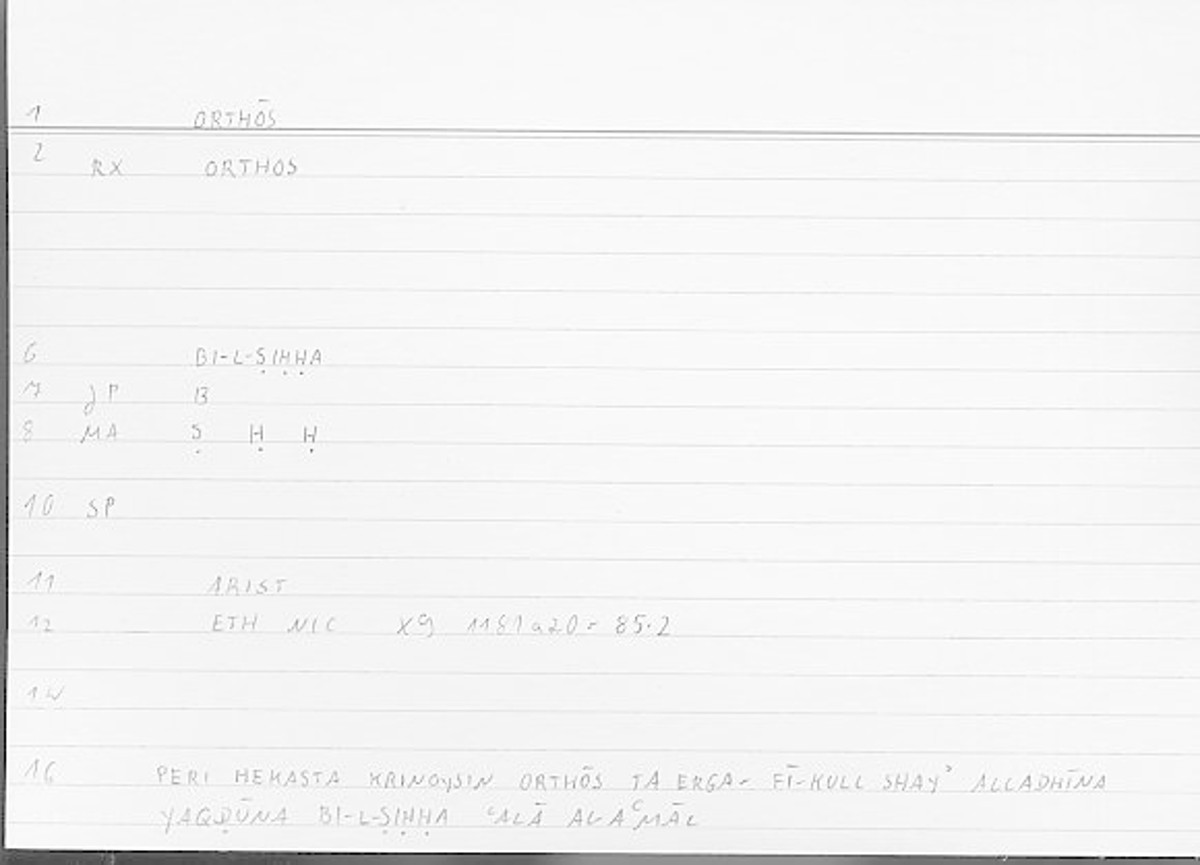 1 ORTHŌS
2 RX ORTHOS
6 BI-L-ṢIḤḤA
7 JP B
8 MA Ṣ Ḥ Ḥ
10 SP
11 ARIST
12 ETH NIC X9 1181a20 = 85.2
14
16 PERI HEKASTA KRINOYSIN ORTHŌS TA ERGA = FĪ-KULL SHAYʾ ALLADHĪNA
YAQḌŪNA BI-L-ṢIḤḤA ʿALĀ AL-AʿMĀL